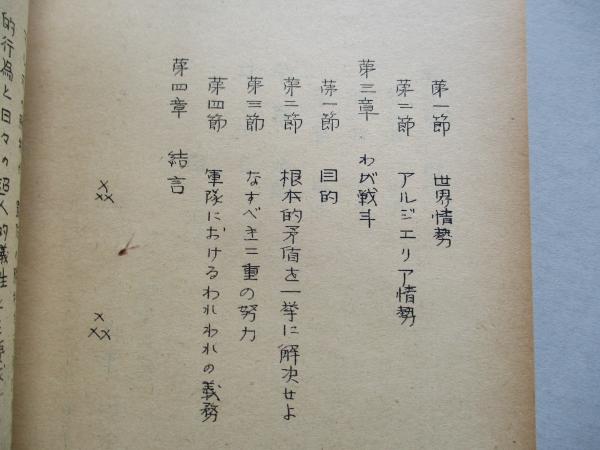 第一節 世界情勢
第二節 アルジエリア情勢
第三章 わが戦斗
第一節 目的
第二節 根本的矛盾を一挙に解決せよ
第三節 なすべき二重の努力
第四節 軍隊におけるわれわれの義務
第四章 結言
×××
×××
的行為と日々の超人的犠牲